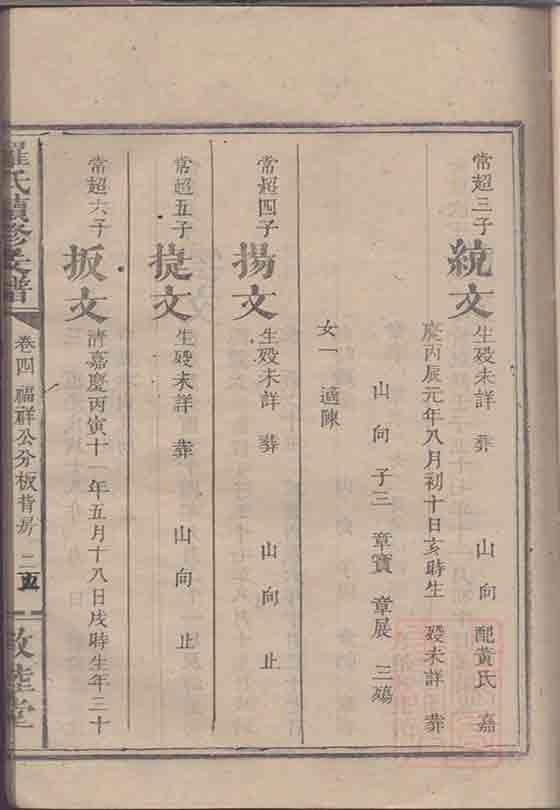 常超三子 統文 生殁未詳 葬 山 向 配黃氏 嘉
慶丙辰元年八月初十日亥時生 殁未詳 葬
山 向 子三 章寳 章展 三殤
女一 適陳
常超四子 揚文 生殁未詳 葬 山 向 止
常超五子 捷文 生殁未詳 葬 山 向 止
常超六子 扳文 清嘉慶丙寅十一年五月十八日戌時生年三十
羅氏續修支譜 卷四 福祥公分板背房 二五 敦睦堂